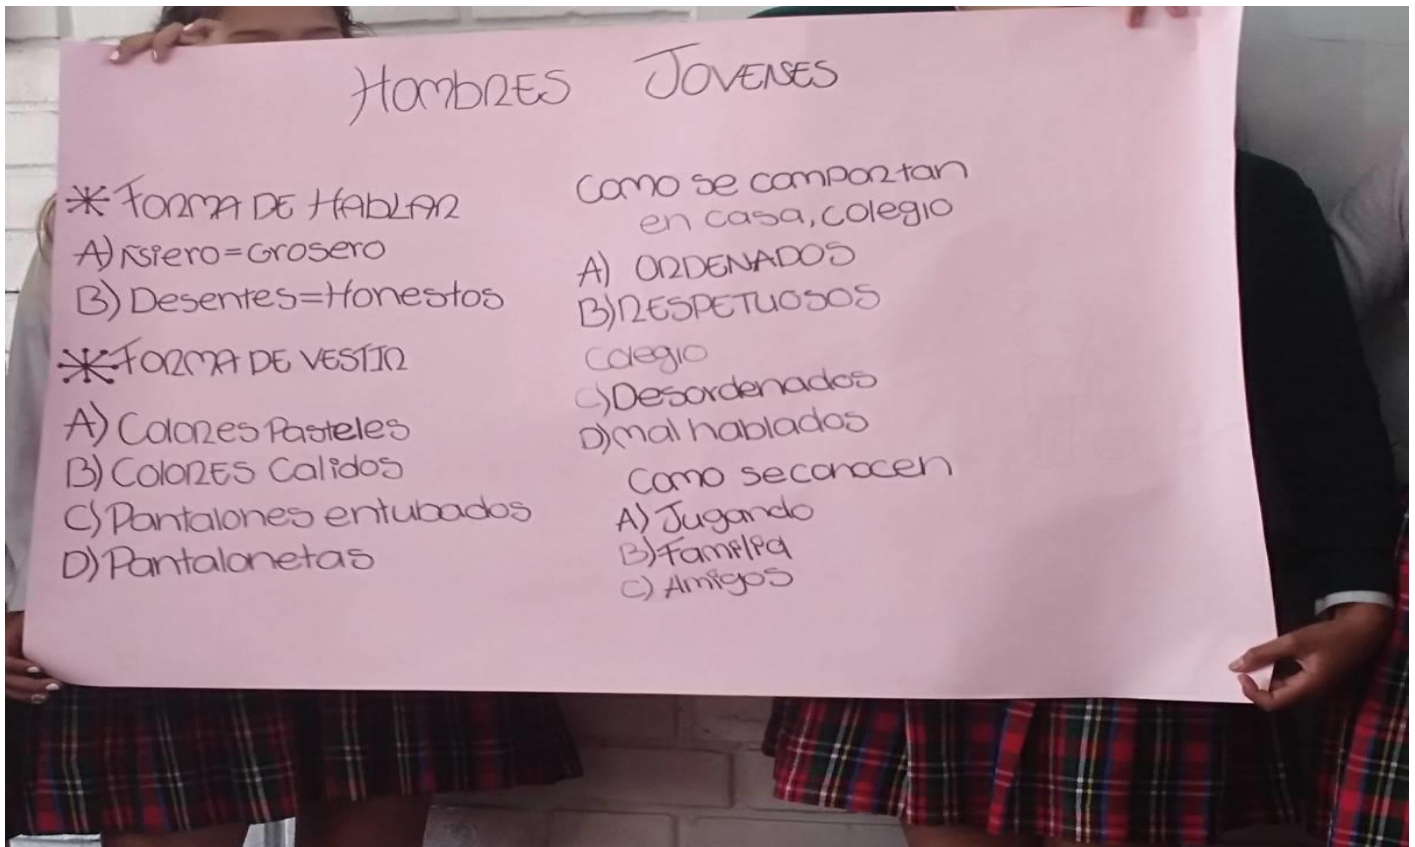 Hombres Jovenes
* Forma de Hablar
A) Ñsiero=Grosero
B) Desentes=Honestos
* Forma de vestir
A) Colores Pasteles
B) Colores Calidos
C) Pantalones entubados
D) Pantalonetas
Como se comportan
en casa, colegio
A) ORDENADOS
B) RESPETUOSOS
Colegio
C) Desordenados
D) mal hablados
Como se conocen
A) Jugando
B) Familia
C) Amigos